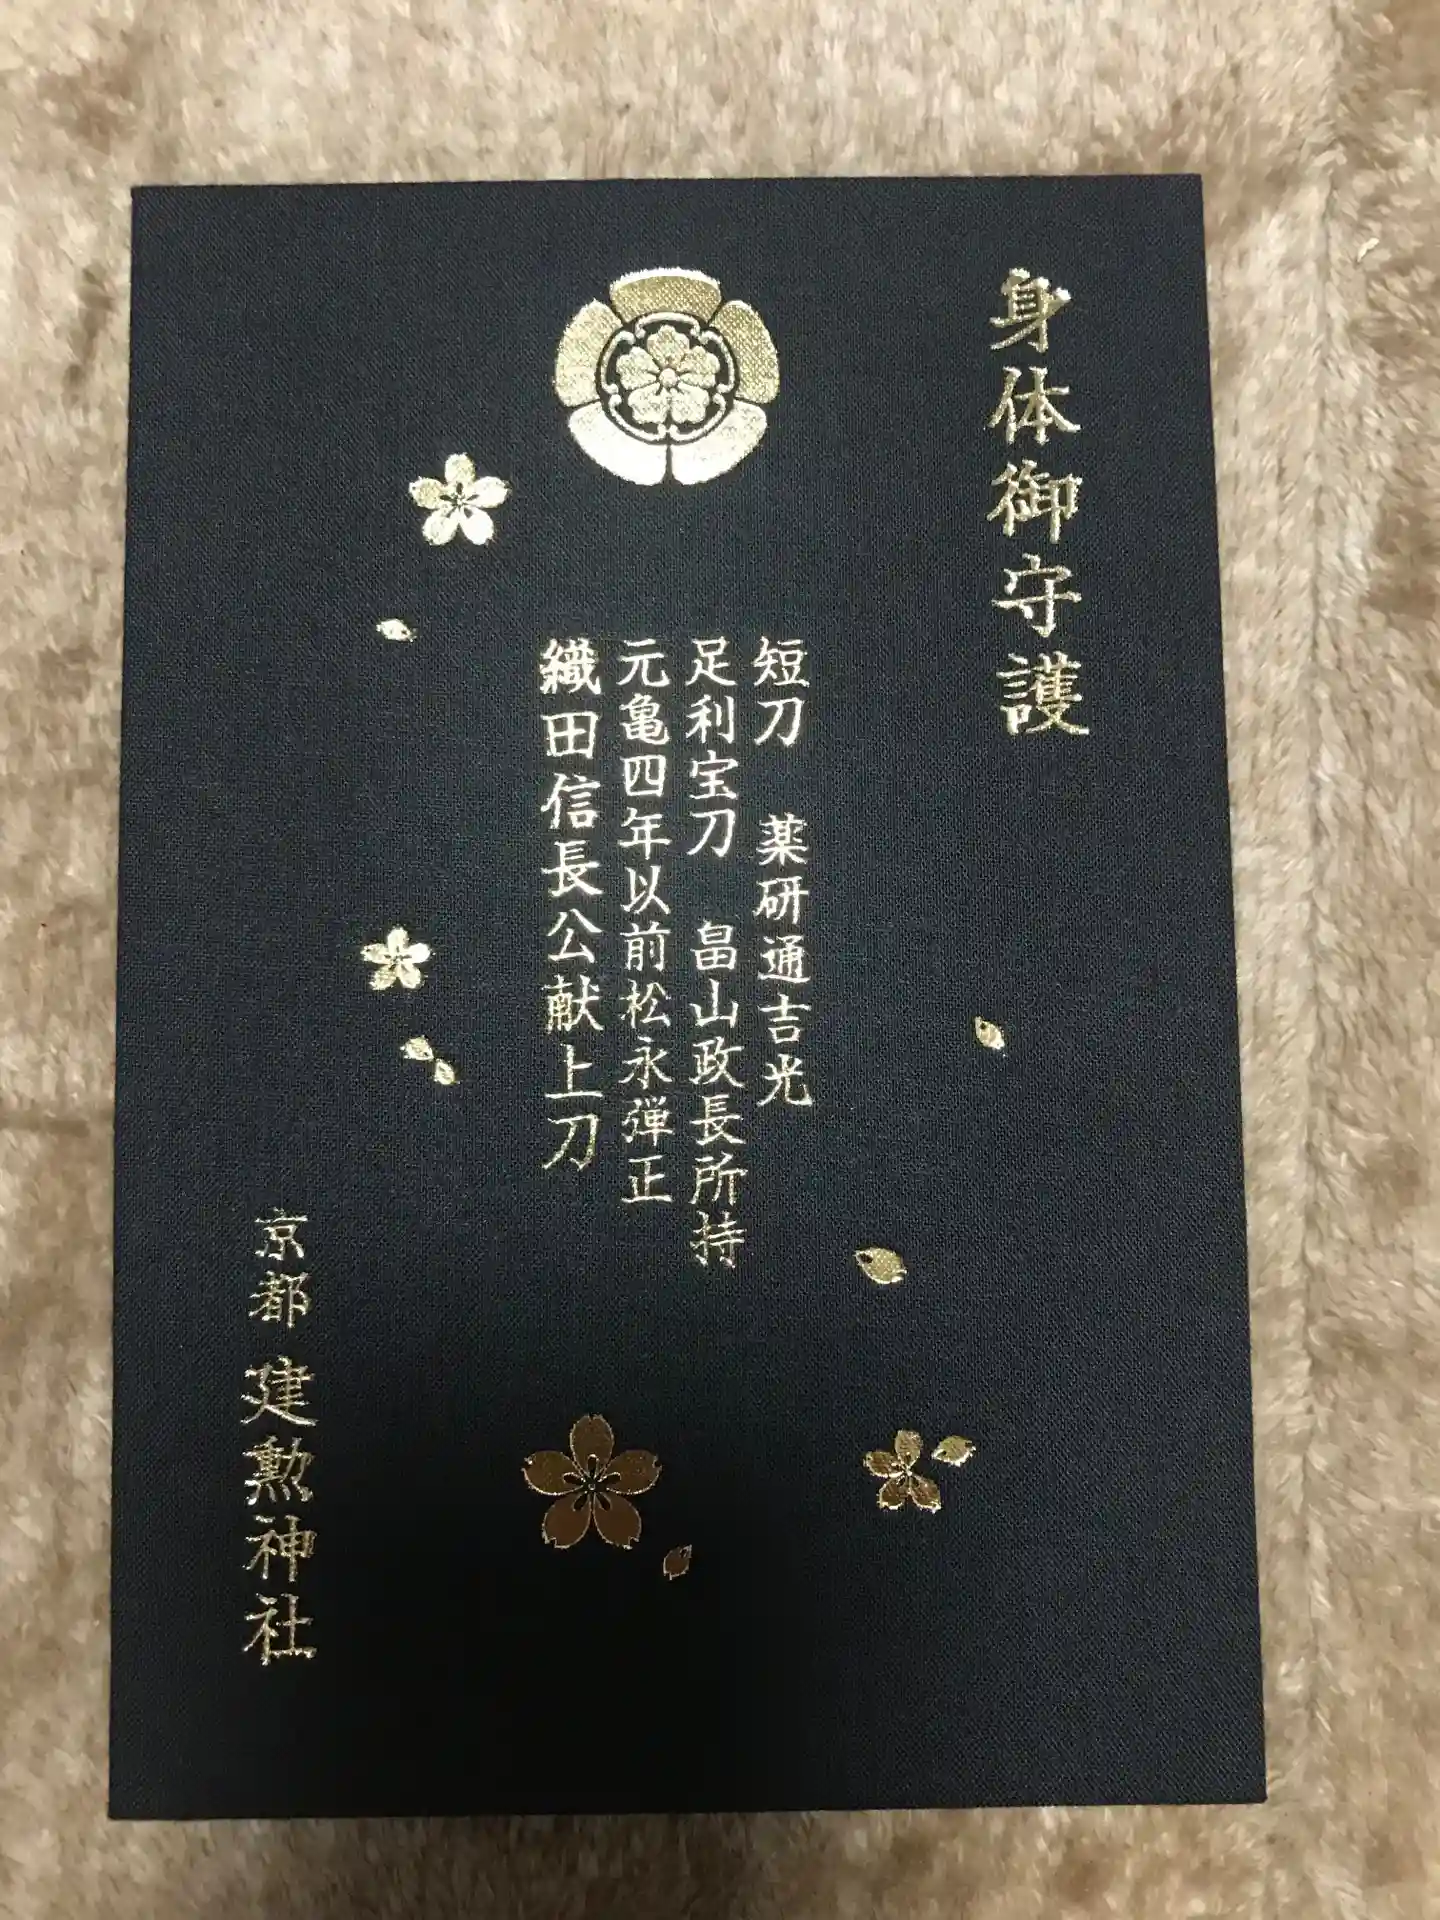 身体御守護
短刀　薬研通吉光
足利宝刀　畠山政長所持
元亀四年以前松永弾正
織田信長公献上刀
京都 建勲神社